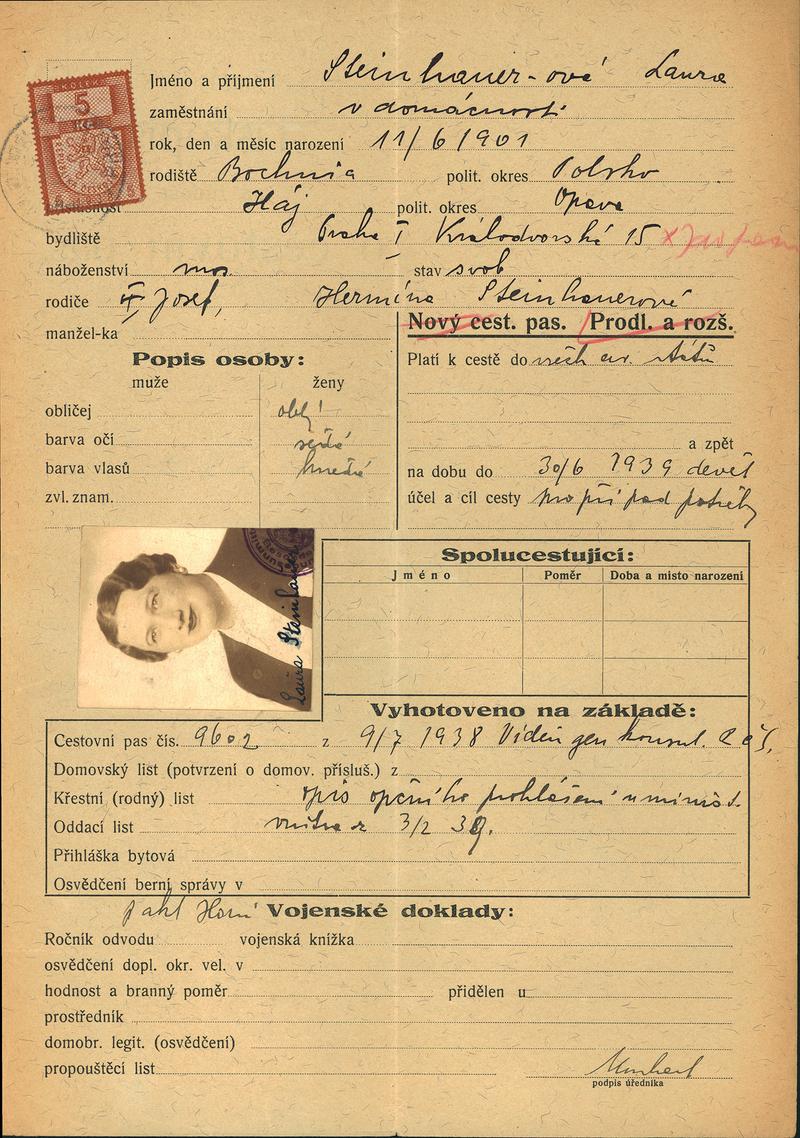 KOLEK
5
Kč
Jméno a příjmení Steinhauer-ová Laura
zaměstnání v domácnosti
rok, den a měsíc narození 11/6 1901
rodiště Bochnia polit. okres Polsko
Háj polit. okres Opava
bydliště Praha I Králodvorská 15
náboženství mos. stav svob
rodiče Josef, Hermína Steinhauerové
manžel-ka
Nový cest. pas. Prodl. a rozš.
Popis osoby:
Platí k cestě do všech ev. států
muže ženy
obličej oblý
barva očí šedé
a zpět
barva vlasů hnědé
na dobu do 30/6 1939 devět
zvl. znam.
účel a cíl cesty pro případ potřeby
Laura Steinhauer
Spolucestující:
Jméno Poměr Doba a misto narození
Vyhotoveno na základě:
Cestovní pas čís. 9602 z 9/7 1938 Vídeň gen konsul. RČS.
Domovský list (potvrzení o domov. přísluš.) z
Křestní (rodný) list opis opčního prohlášení u minist.
Oddací list vnitra z 3/2 39.
Přihláška bytová
Osvědčení berní správy v
Vojenské doklady:
Ročník odvodu vojenská knížka
osvědčení dopl. okr. vel. v
hodnost a branný poměr přidělen u
prostředník
domobr. legit. (osvědčení)
propouštěcí list
podpis úředníka